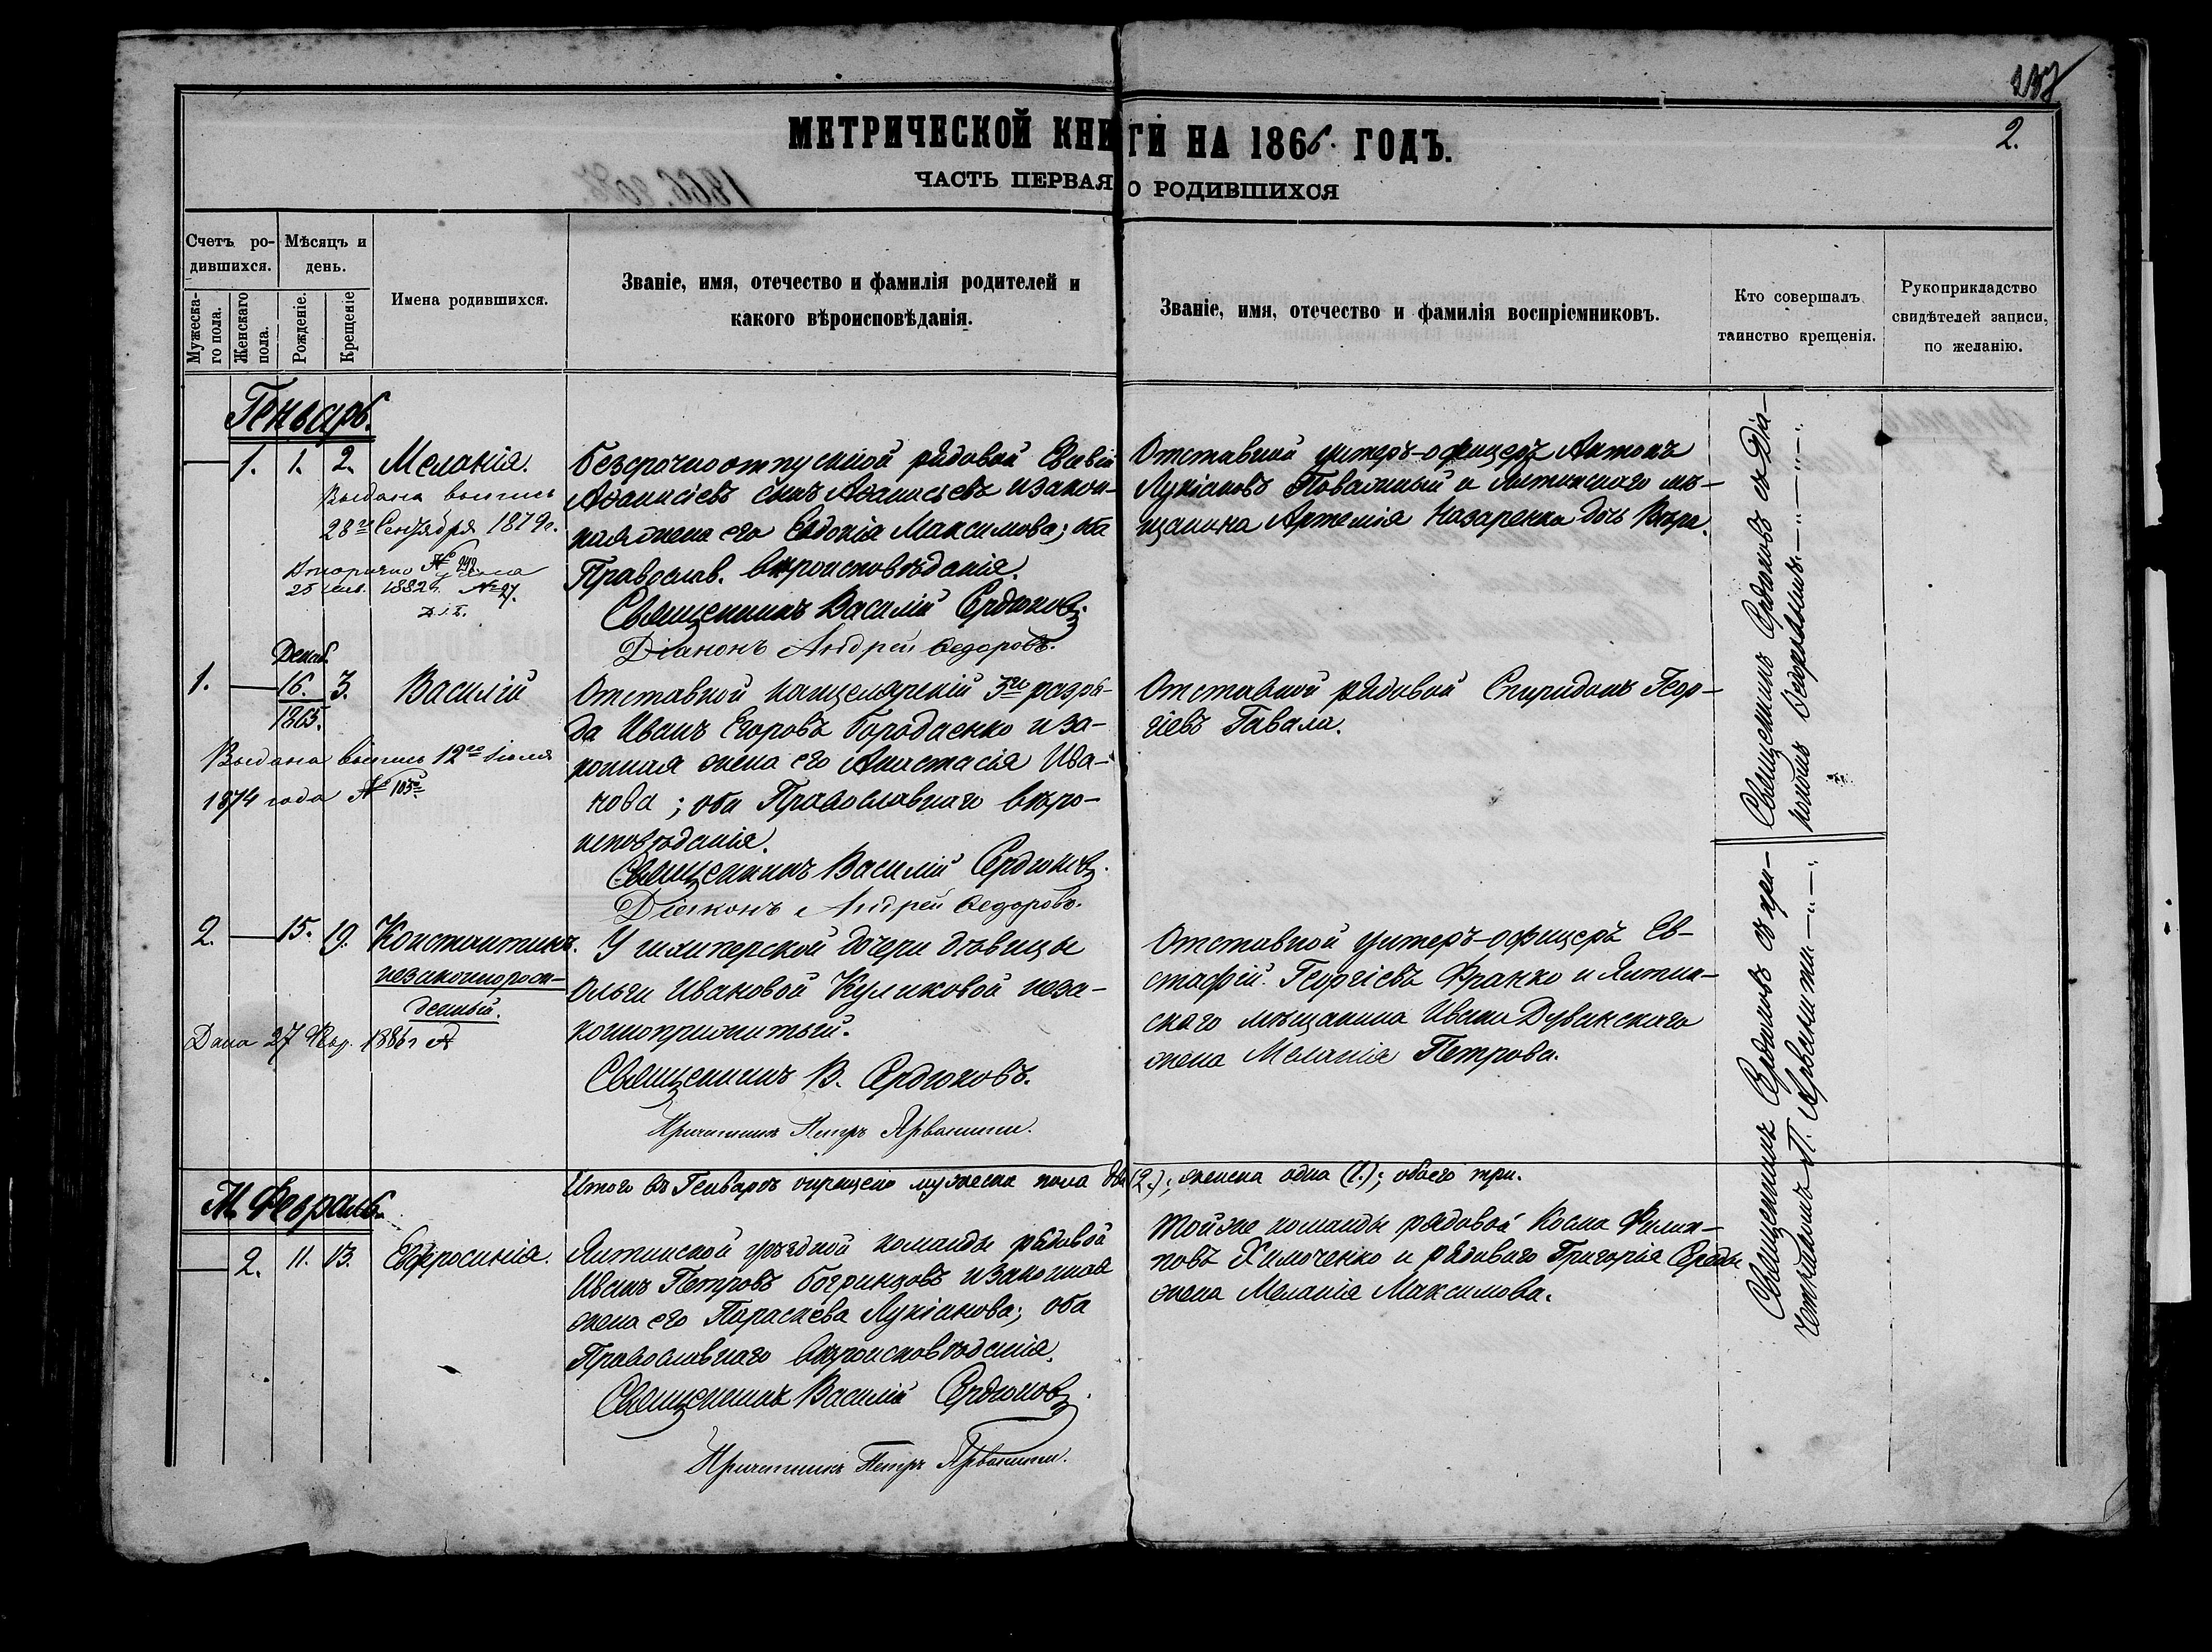 237
2.
МЕТРИЧЕСКОЙ КНИГИ НА 1866. ГОДЪ.
ЧАСТЬ ПЕРВАЯ О РОДИВШИХСЯ
Счетъ ро-
дившихся.
Мужеска-
го пола.
Женскаго
пола.
Мѣсяцъ и
день.
Рожденіе.
Крещеніе
Имена родившихся.
Званіе, имя, отечество и фамилія родителей и
какого вѣроисповѣданія.
Званіе, имя, отечество и фамилія воспріемниковъ.
Кто совершалъ
таинство крещенія.
Рукоприкладство
свидѣтелей записи,
по желанію.
Генварь.
1. 1. 2. Меланія.
Выдана выпись
28го Сентября 1879г.
Вторично
25 1882г. № 27.
Безсрочноотпускной рядовой
Аѳанасіевъ сынъ Аѳанасьевъ и закон-
ная жена его Евдокія Максимова; оба
Православ. вѣроисповѣданія.
Священникъ Василій Сердюковъ.
Діаконъ Андрей Ѳедоровъ.
Отставной унтеръ-офицеръ Антонъ
Лукіановъ Поважный и Ялтинскаго мѣ-
щанина Артемія Назаренка дочь Вѣра.
Декаб.
1. 16. 3. Василій
1865.
Выдана выпись 12го Іюля
1874 года № 105й
Отставной канцелярскій 3го разря-
да Иванъ Егоровъ Бородаенко и за-
конная жена его Анастасія Ива-
нова; оба Православнаго вѣро-
исповѣданія.
Священникъ Василій Сердюковъ.
Діаконъ Андрей Ѳедоровъ.
Отставной рядовой Спиридонъ Геор-
гіевъ Гавала.
2. 15. 19. Константинъ.
незаконнорож-
денный.
Дана 27 Февр. 1886г
У шкиперской дочери дѣвицы
Ольги Ивановой Куликовой неза-
конноприжитый.
Священникъ В. Сердюковъ.
Причетникъ Петръ Арванити.
Отставной унтеръ-офицеръ Ев-
стафій Георгіевъ Франко и Ялтин-
скаго мѣщанина Ивана Дуванскаго
жена Меланія Петрова.
Священникъ Сердюковъ съ Діа-
кономъ Ѳедоровымъ —„—„—„—.
Итого въ Генварѣ окрещено мужеска пола два (2.); женска одна (1.); обоего три.
М. Февраль.
2. 11. 13. Евфросинія.
Ялтинской уѣздной команды рядовой
Иванъ Петровъ Богринцовъ и законная
жена его Параскева Лукіанова; оба
Православнаго вѣроисповѣданія.
Священникъ Василій Сердюковъ.
Причетникъ Петръ Арванити.
Тойже команды рядовой Косма Филип-
повъ Химоченко и рядоваго Григорія Середы
жена Меланія Максимова.
Священникъ Сердюковъ съ при-
четникомъ П. Арванити —„—„—.